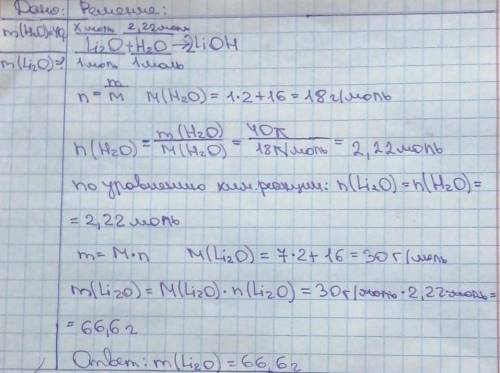 Дано: Решение:
m(H₂O)=40г х моль 2,22моль
Li₂O+H₂O→2LiOH
m(Li₂O)=? 1моль 1моль
n=m/M M(H₂O)=1·2+16=18г/моль
n(H₂O)=m(H₂O)/M(H₂O)=40г/18г/моль=2,22моль
по уравнению хим.реакции: n(Li₂O)=n(H₂O)=
=2,22моль
m=M·n M(Li₂O)=7·2+16=30г/моль
m(Li₂O)=M(Li₂O)·n(Li₂O)=30г/моль·2,22моль=
=66,6г
Ответ: m(Li₂O)=66,6г